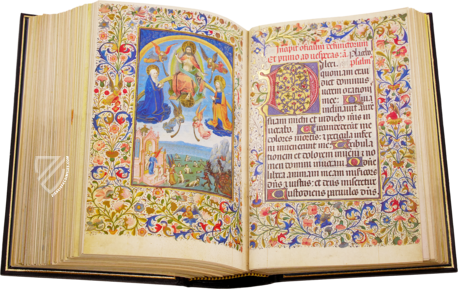 Incipit officium defunctorum
Et primo ad vesperas: a. Placebo
psalm
Dilexi
quoniam exau
diet dominus
vocem orationis
mee: Quia
aurem
suam michi et in diebus meis in
vocabo Circumdederunt me
dolores mortis: et pericula infer
ni invenerunt me Tribula
tionem et dolorem inveni et no
men domini invocavi O domine
libera animam meam misericors
dominus et iustus: et deus
Custodiens parvulos dominus